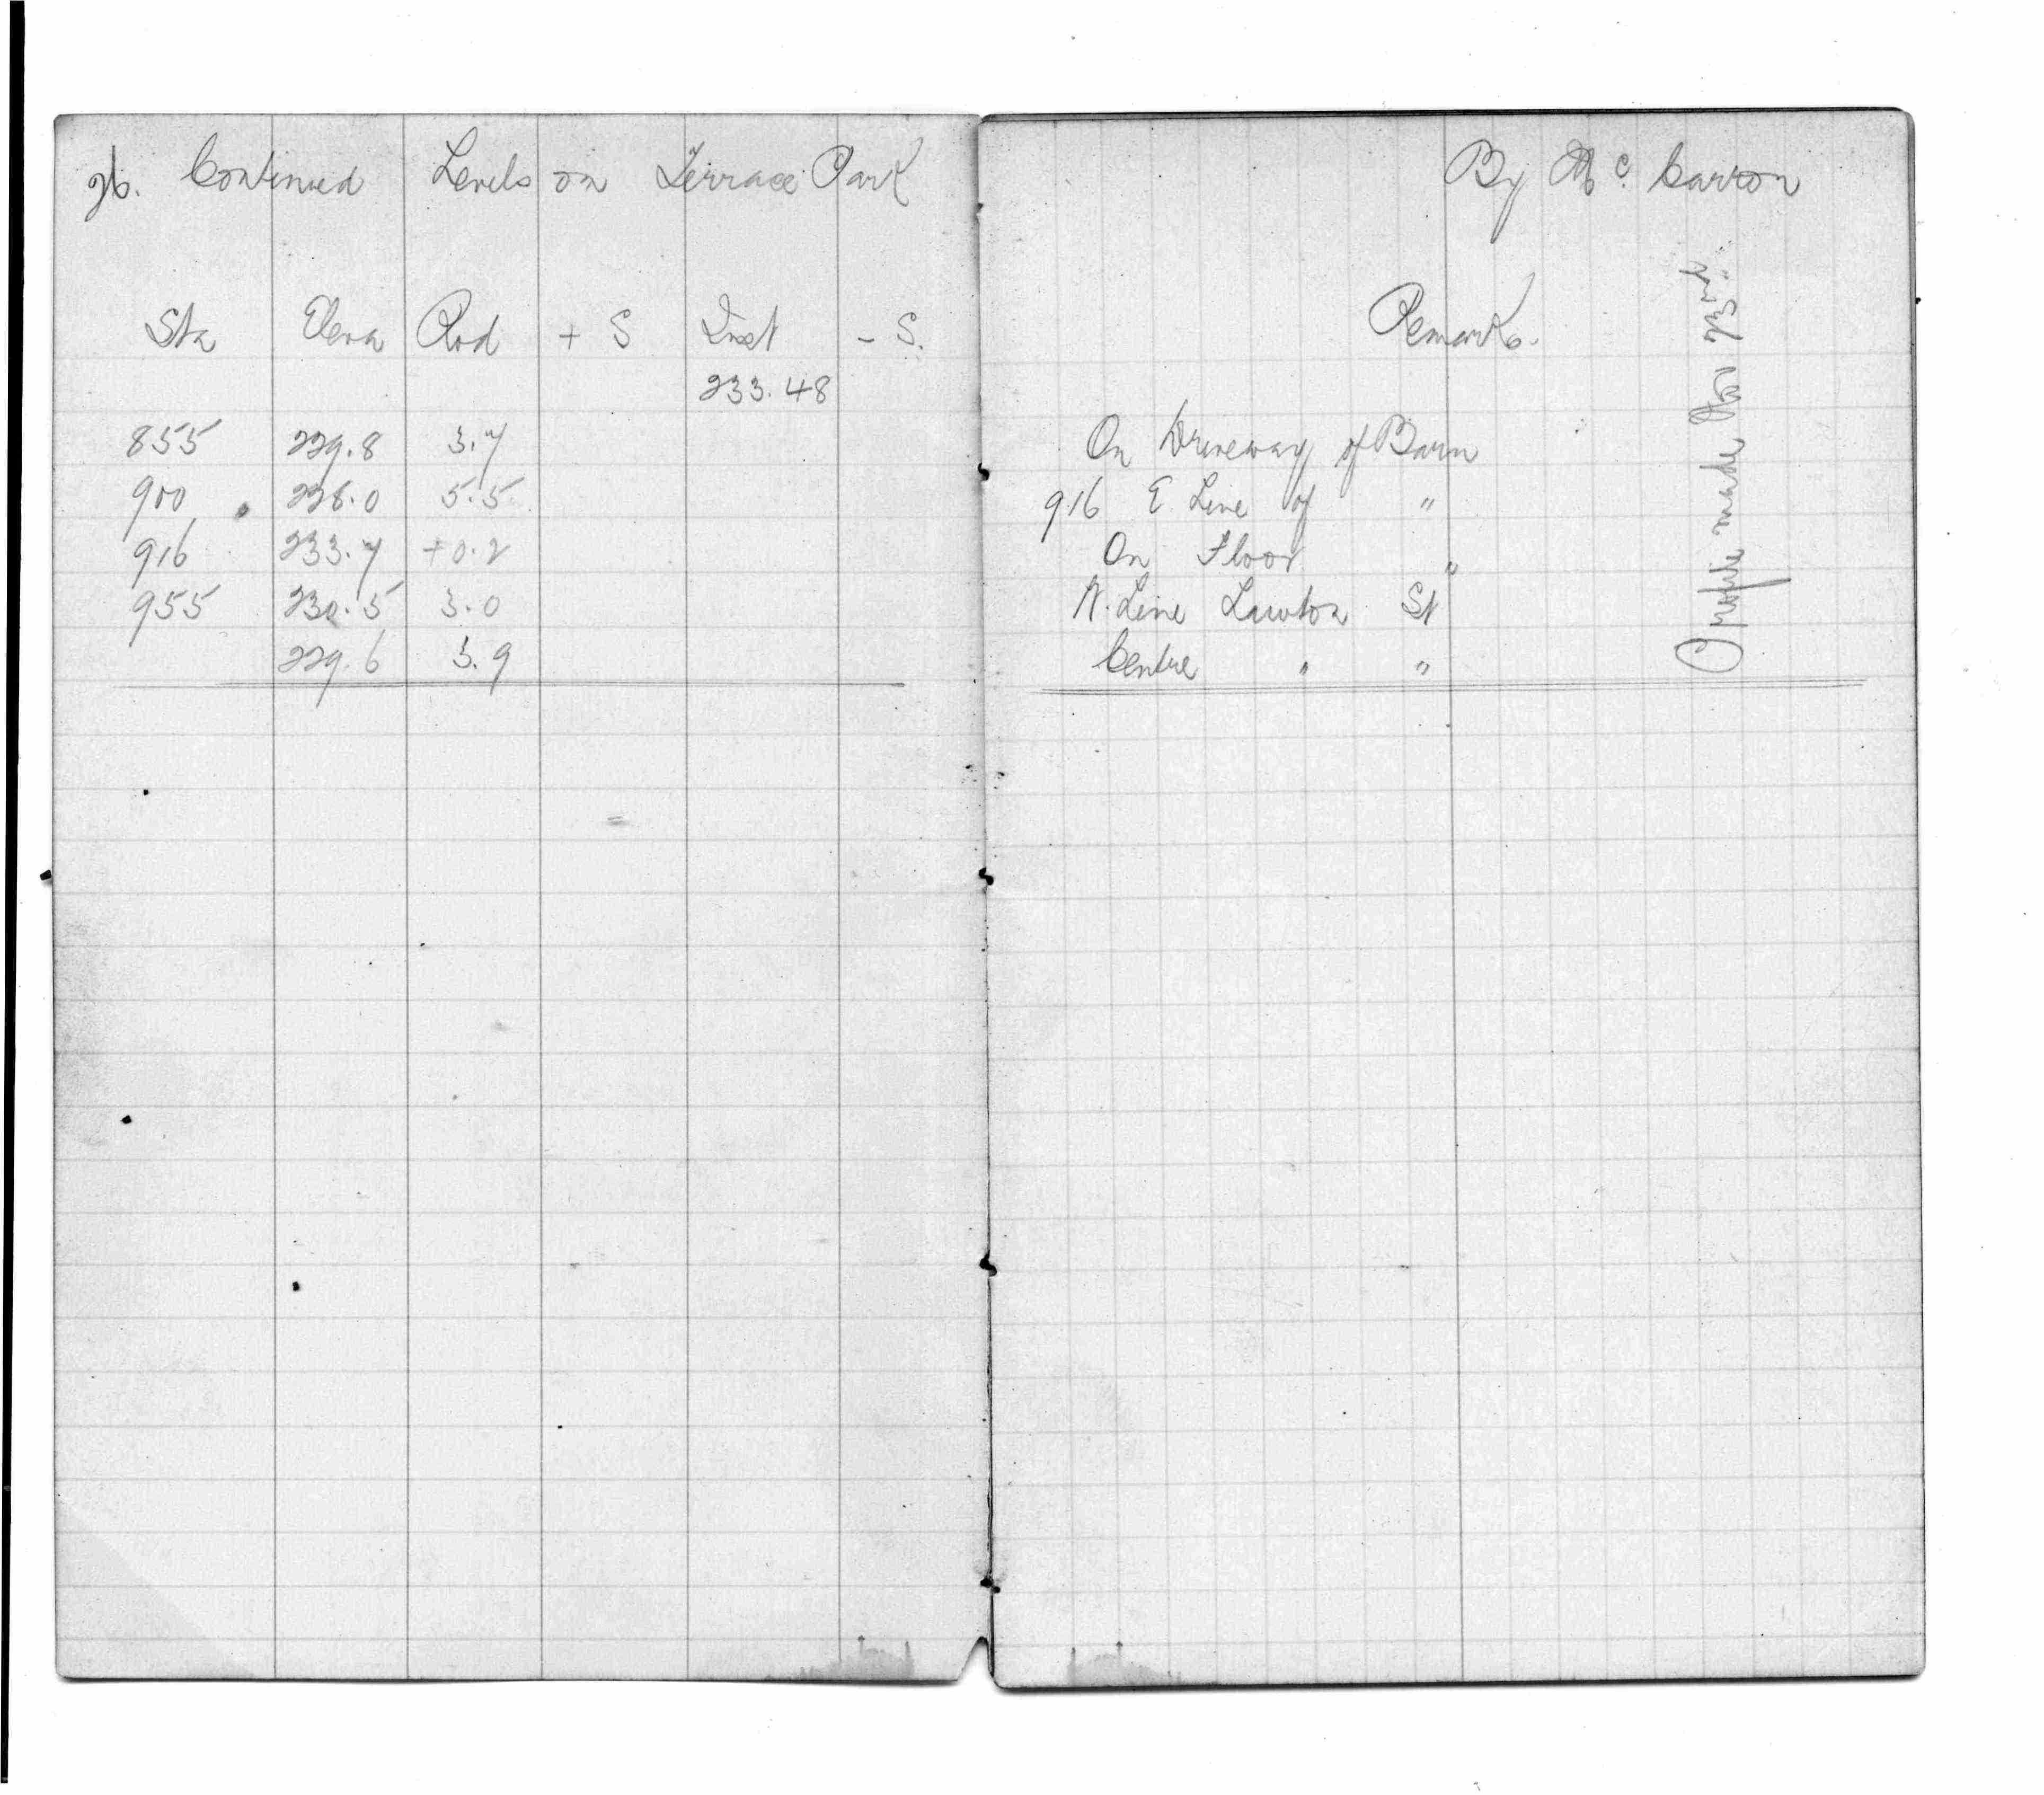 26. Continued Levels on Terrace Park
Sta Eleva Rod + S Inst - S.
233.48
855 229.8 3.7
900 228.0 5.5
916 233.7 +0.2
955 230.5 3.0
229.6 3.9
By Mc. Carron
Remarks.
On Driveway of Barn
916 E Line of "
On Floor "
N. Line Lawton St
Centre " "
Profile made Nov 23rd